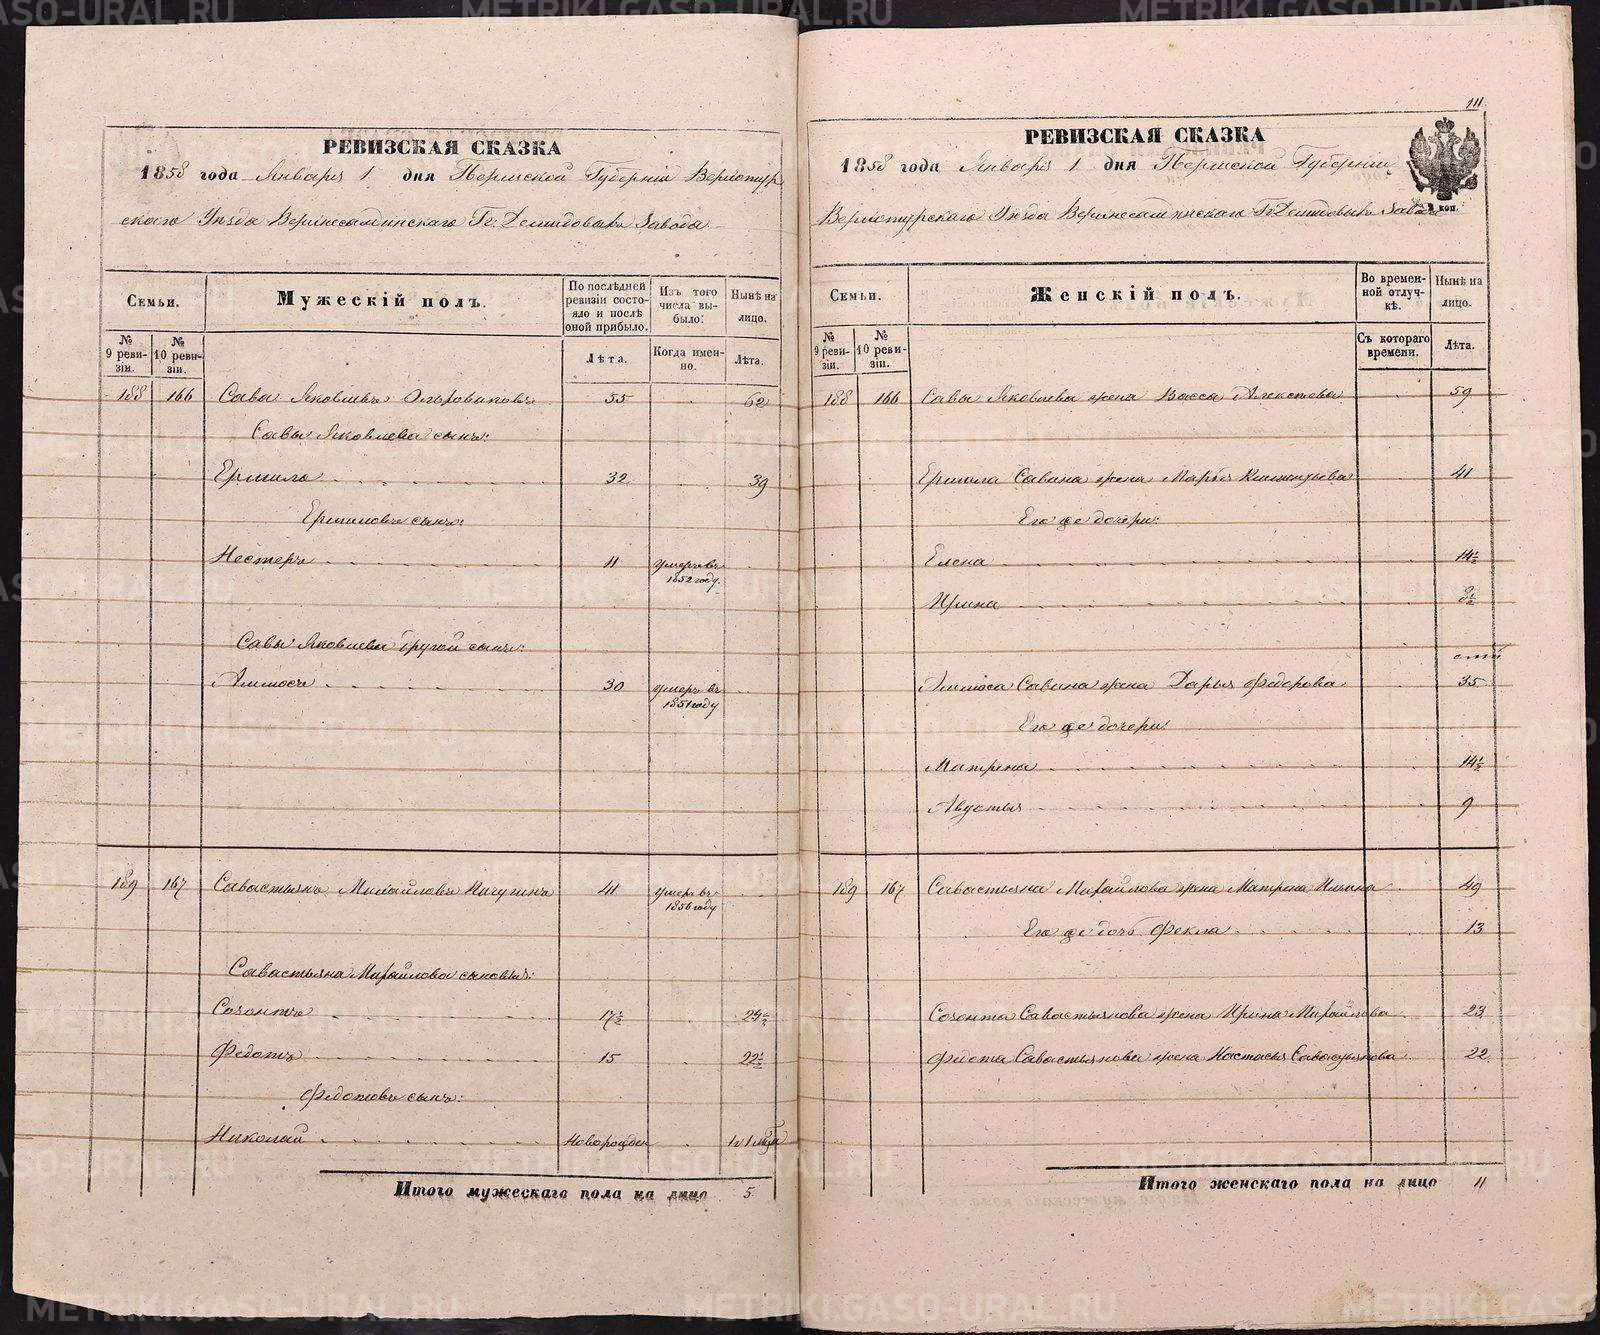 111.
РЕВИЗСКАЯ СКАЗКА
1858 года Января 1 дня Пермской Губерніи Верхотур
скаго Уѣзда Верхнесалдинскаго Гг. Демидовыхъ Завода.
Семьи.
Мужескій полъ.
По послѣдней ревизіи состояло и послѣ оной прибыло.
Изъ того числа выбыло:
Нынѣ на лицо.
№ 9 ревизіи.
№ 10 ревизіи.
Лѣта.
Когда именно.
Лѣта.
188 166 Сава Яковлевъ 55 62
Савы Яковлева сынъ:
Ермила 32 39
Ермиловъ сынъ:
Нестеръ 11 умеръ въ 1852 году.
Савы Яковлева другой сынъ:
Аммосъ 30 умеръ въ 1851 году
189 167 Савастьянъ Михайловъ Пичугинъ 41 умеръ въ 1856 году
Савастьяна Михайлова сыновья:
Созонтъ 17½ 24½
Федотъ 15 22½
Федотовъ сынъ:
Николай новорожден
Итого мужескаго пола на лицо 5
РЕВИЗСКАЯ СКАЗКА
1858 года Января 1 дня Пермской Губерніи
2 коп.
Верхотурскаго Уѣзда Верхнесалдинскаго Гг. Демидовыхъ Завода
Семьи.
Женскій полъ.
Во временной отлучкѣ.
Нынѣ на лицо.
№ 9 ревизіи.
№ 10 ревизіи.
Съ котораго времени.
Лѣта.
188 166 Савы Яковлева жена Васса Алексѣева 59
Ермила Савина жена Марья 41
Его же дочери:
Елена 14½
Ирина
Аммоса Савина жена Дарья Федорова 35
Его же дочери:
Матрена 14½
Авдотья 9
189 167 Савастьяна Михайлова жена Матрена Ильина 49
Его же дочь Фекла 13
Созонта Савастьянова жена Ирина Михайлова 23
Федота Савастьянова жена Настасья 22
Итого женскаго пола на лицо 11
METRIKI.GASO-URAL.RU